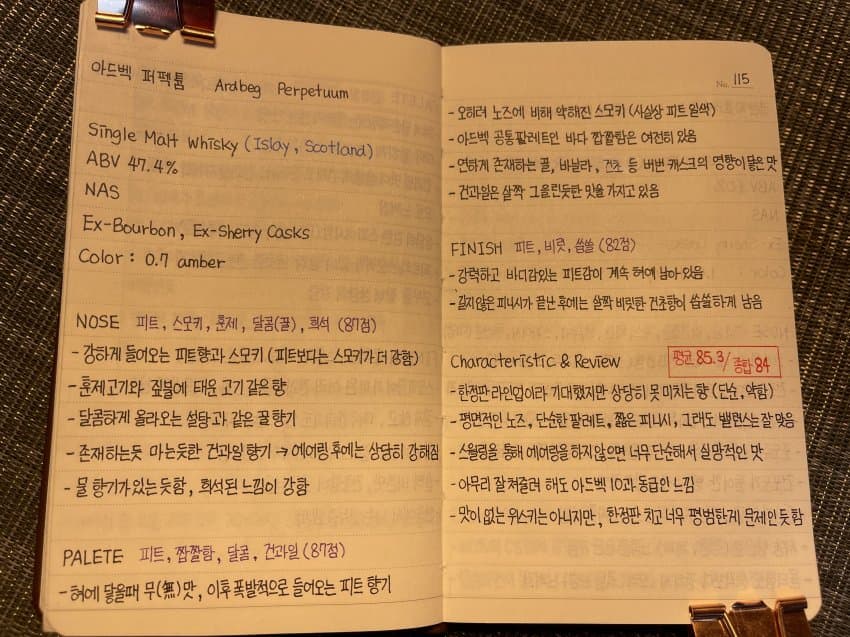 아드벡 퍼펙튬 Ardbeg Perpetuum
Single Malt Whisky (Islay, Scotland)
ABV 47.4%
NAS
Ex-Bourbon, Ex-Sherry Casks
Color : 0.7 amber
NOSE 피트, 스모키, 훈제, 달콤(꿀), 희석 (87점)
- 강하게 들어오는 피트향과 스모키 (피트보다는 스모키가 더 강함)
- 훈제고기와 짚불에 태운 고기 같은 향
- 달콤하게 올라오는 설탕과 같은 꿀 향기
- 존재하는듯 마는듯한 건과일 향기 → 에어링 후에는 상당히 강해짐
- 물 향기가 있는 듯함, 희석된 느낌이 강함
PALETE 피트, 짭짤함, 달콤, 건과일 (87점)
- 혀에 닿을때 무(無)맛, 이후 폭발적으로 들어오는 피트 향기
No. 115
- 오히려 노즈에 비해 약해진 스모키 (사실상 피트 일색)
- 아드벡 공통팔레트인 바다 짭짤함은 여전히 있음
- 연하게 존재하는 꿀, 바닐라, 건초 등 버번 캐스크의 영향이 닿은 맛
- 건과일은 살짝 그을린듯한 맛을 가지고 있음
FINISH 피트, 비릿, 씁쓸 (82점)
- 강력하고 바디감있는 피트감이 계속 혀에 남아 있음
- 길지 않은 피니시가 끝난 후에는 살짝 비릿한 건초향이 씁쓸하게 남음
Characteristic & Review 평균 85.3 / 종합 84
- 한정판 라인업이라 기대했지만 상당히 못 미치는 향 (단순, 약함)
- 평면적인 노즈, 단순한 팔레트, 짧은 피니시, 그래도 밸런스는 잘 맞음
- 스월링을 통해 에어링을 하지 않으면 너무 단순해서 실망적인 맛
- 아무리 잘 쳐줄러 해도 아드벡 10과 동급인 느낌
- 맛이 없는 위스키는 아니지만, 한정판 치고 너무 평범한게 문제인 듯 함